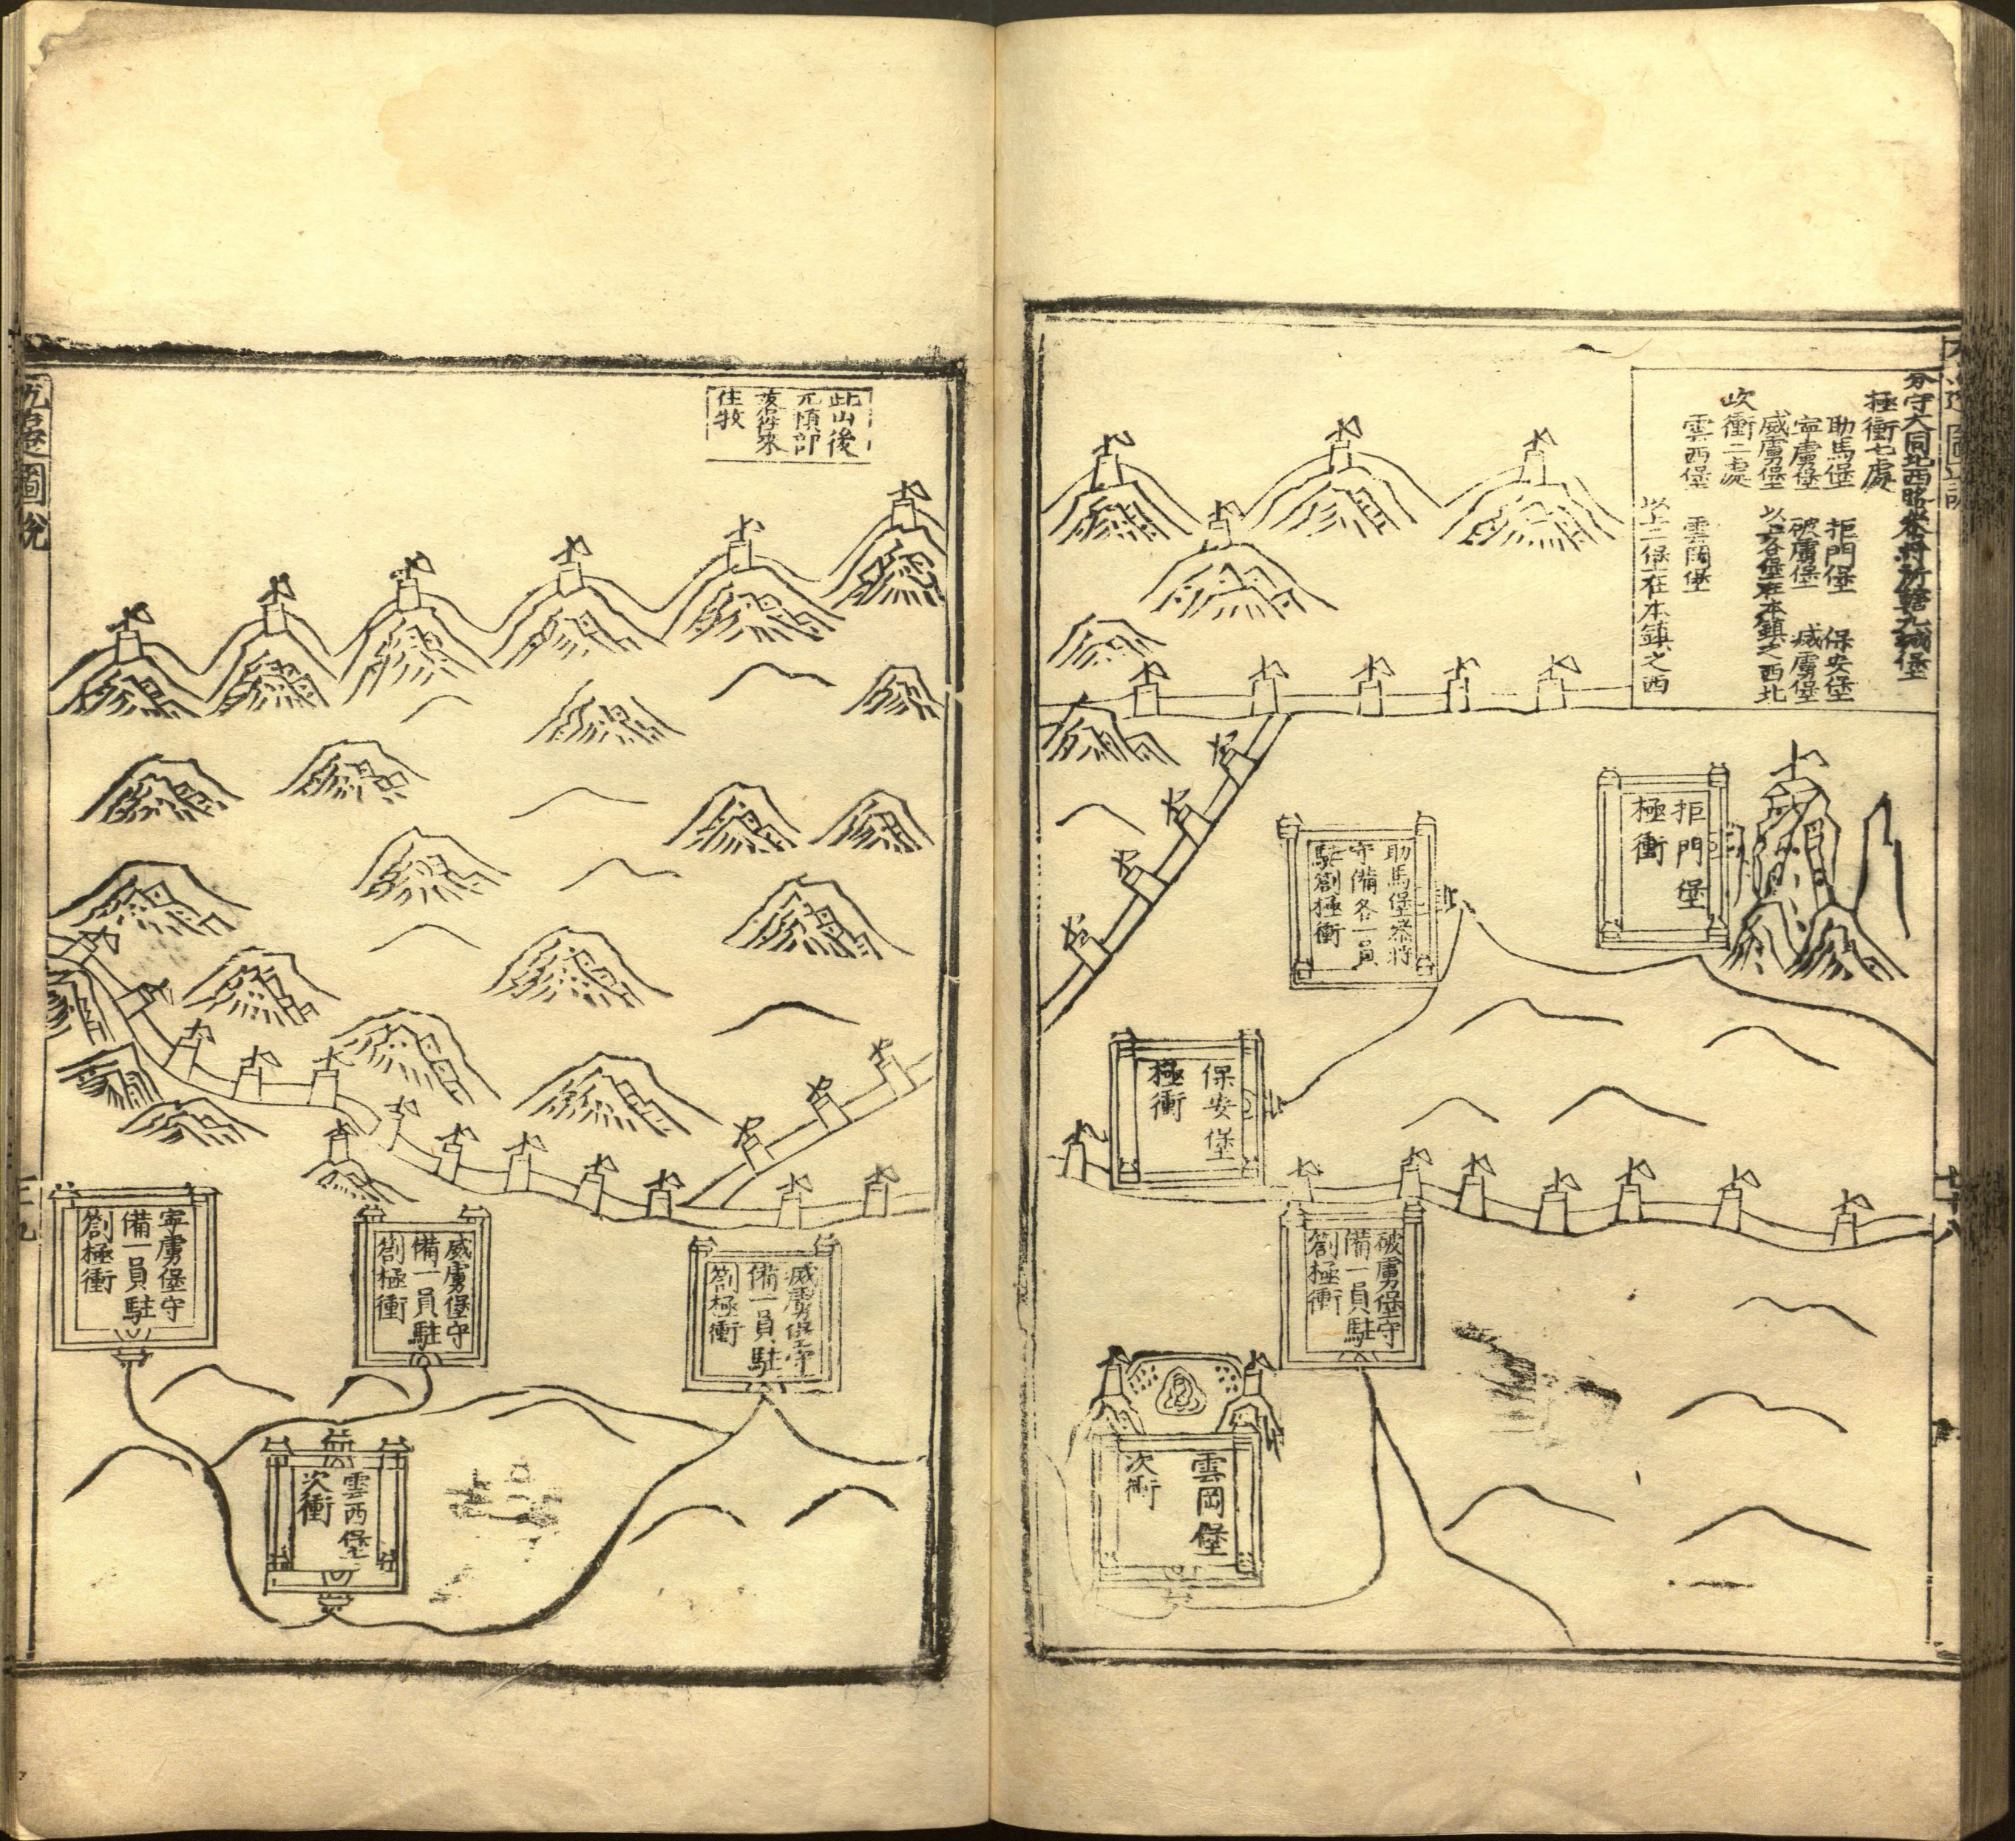 分守大同北西路叅將所轄九城堡
極衝七處
助馬堡 拒門堡 保安堡
寧虜堡 破虜堡 滅虜堡
威虜堡 以上各堡在本鎮之西北
次衝二處
雲西堡 雲岡堡
以上二堡在本鎮之西
拒門堡
極衝
助馬堡叅將
守備各一員
駐劄極衝
保安堡
極衝
破虜堡守
備一員駐
劄極衝
雲岡堡
次衝
七十八
此山後
兀慎部
落得來
住牧
滅虜堡守
備一員駐
劄極衝
威虜堡守
備一員駐
劄極衝
寧虜堡守
備一員駐
劄極衝
雲西堡
次衝
九邊圖說